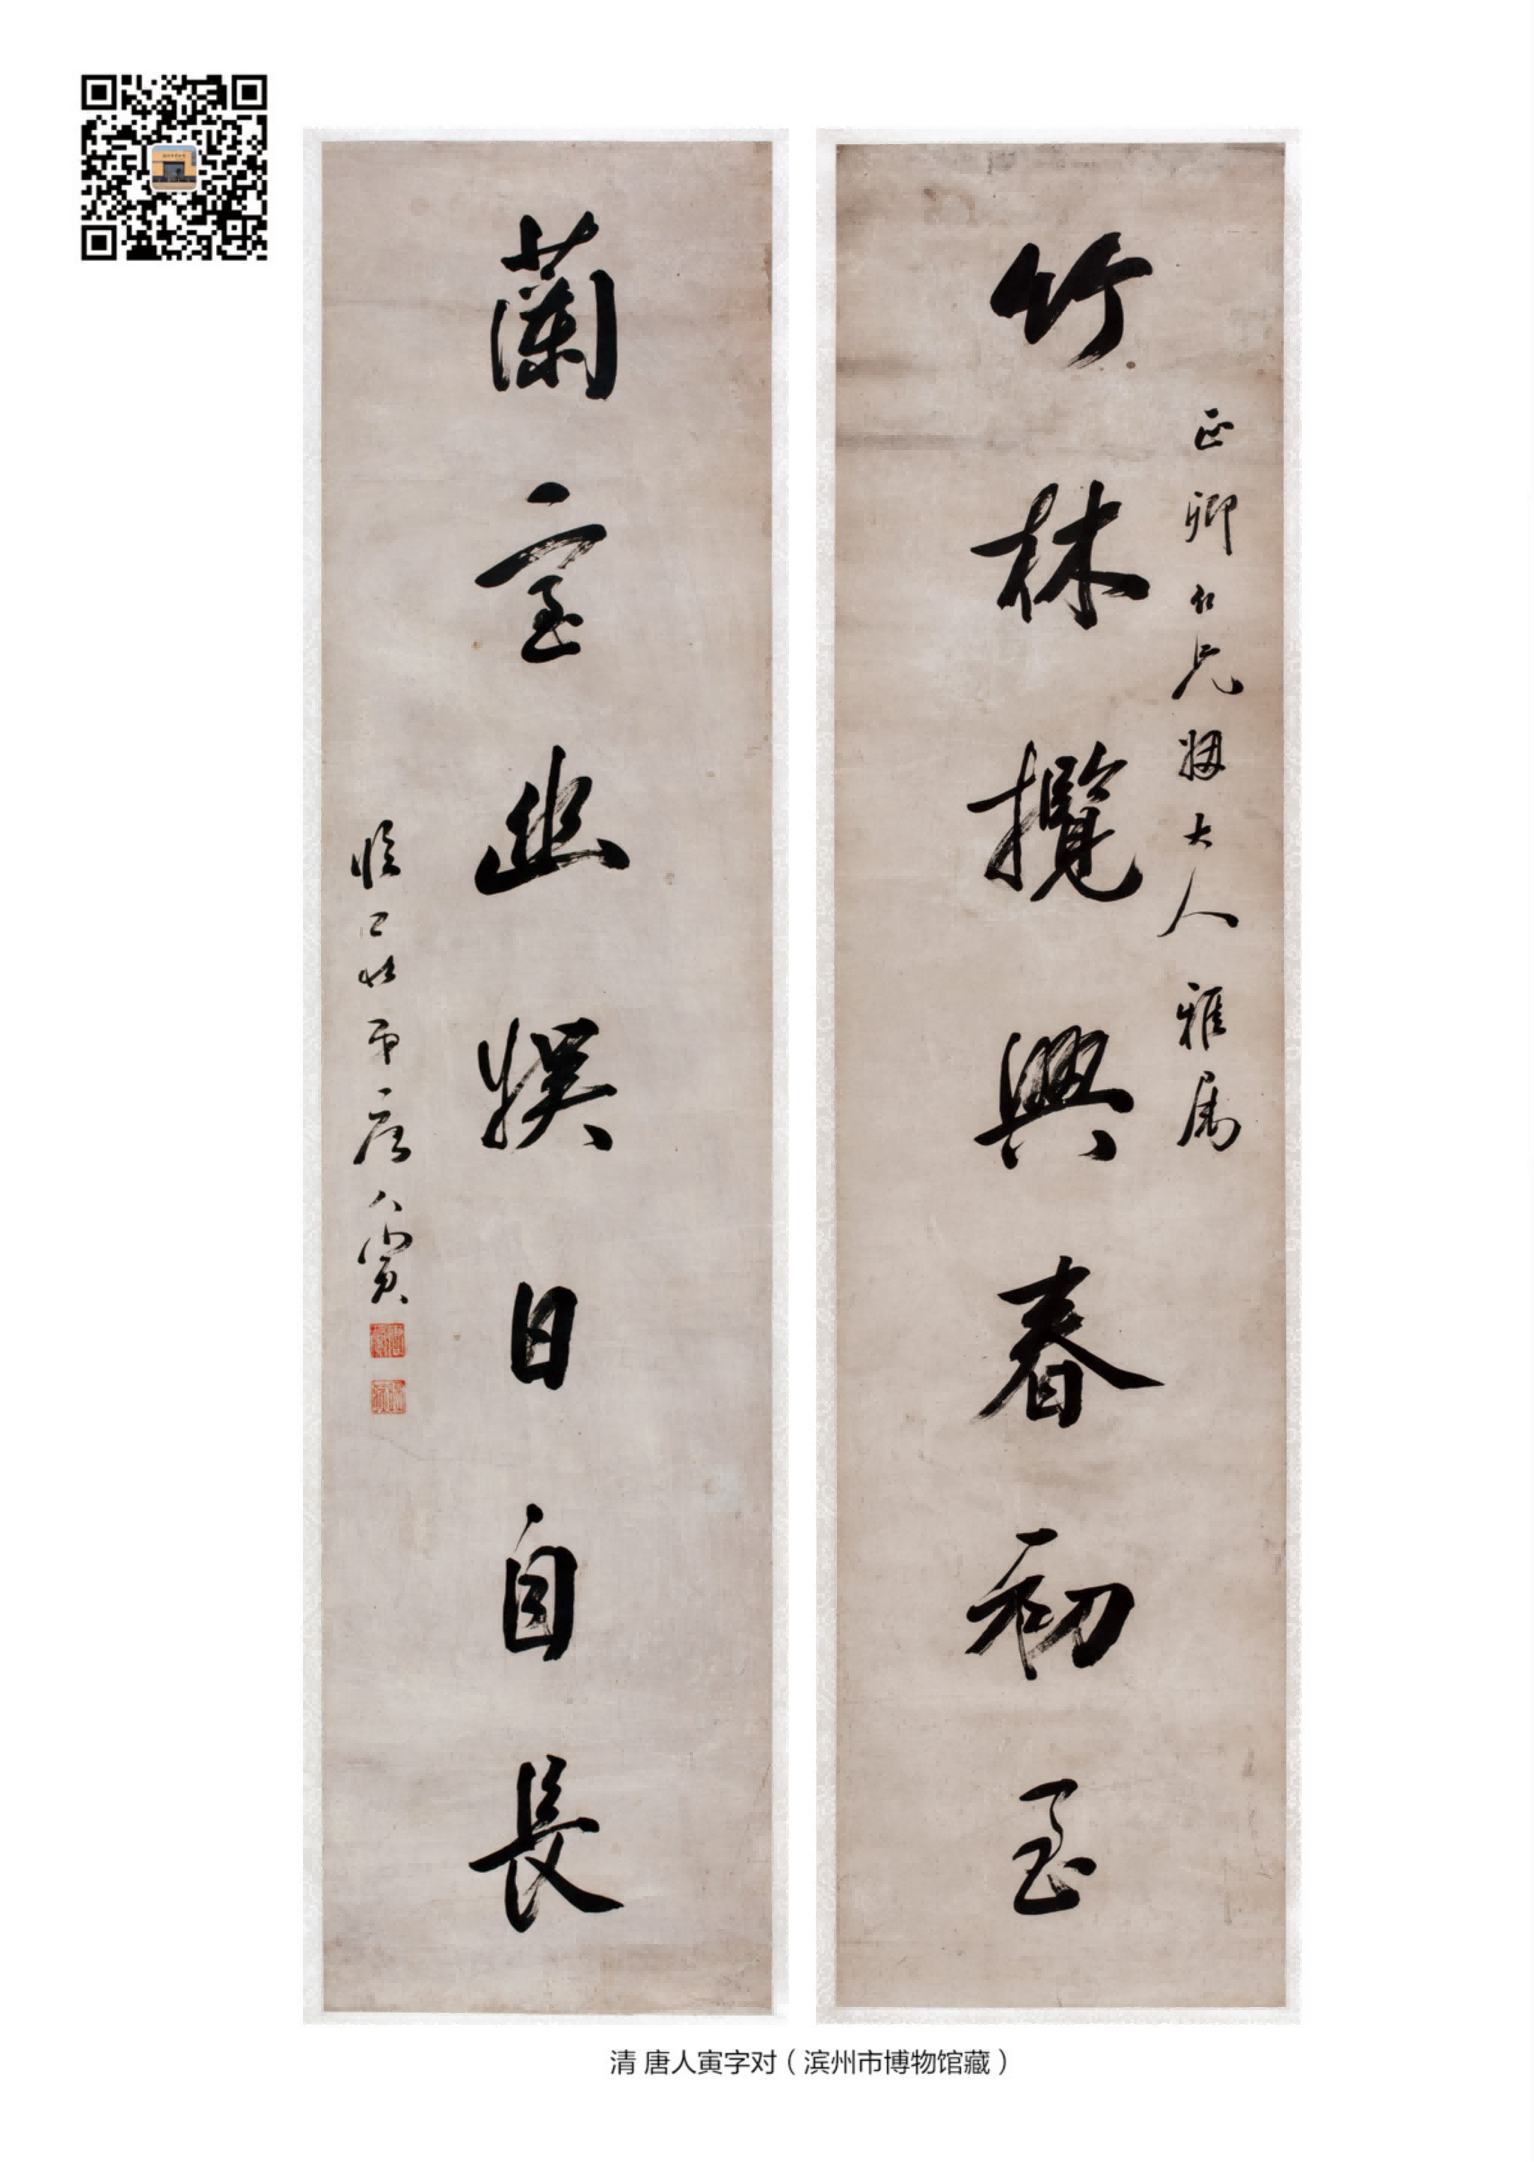 竹林攬興春初至
正卿仁兄姻大人雅属
蘭室幽娱日自長
弟唐人寅
清 唐人寅字对（滨州市博物馆藏）